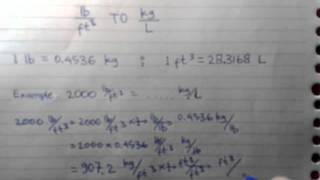 lb/ft³ TO kg/L
1 lb = 0.4536 kg ; 1 ft³ = 28.3168 L
Example: 2000 lb/ft³ = ........ kg/L
2000 lb/ft³ = 2000 lb/ft³ × 0.4536 kg/lb
= 2000 × 0.4536 kg/ft³
= 907.2 kg/ft³ × ft³